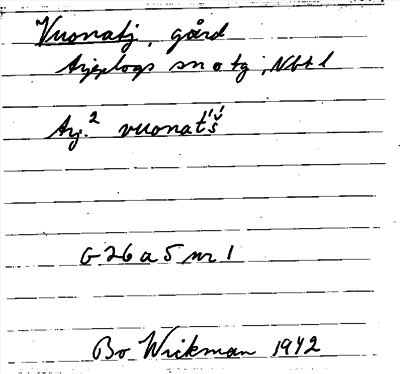 Vuonatj, gård
Arjeplogs sn o tg, Nbtl
Arj.² vuonat́š́
G 26 a 5 nr 1
Bo Wickman 1942